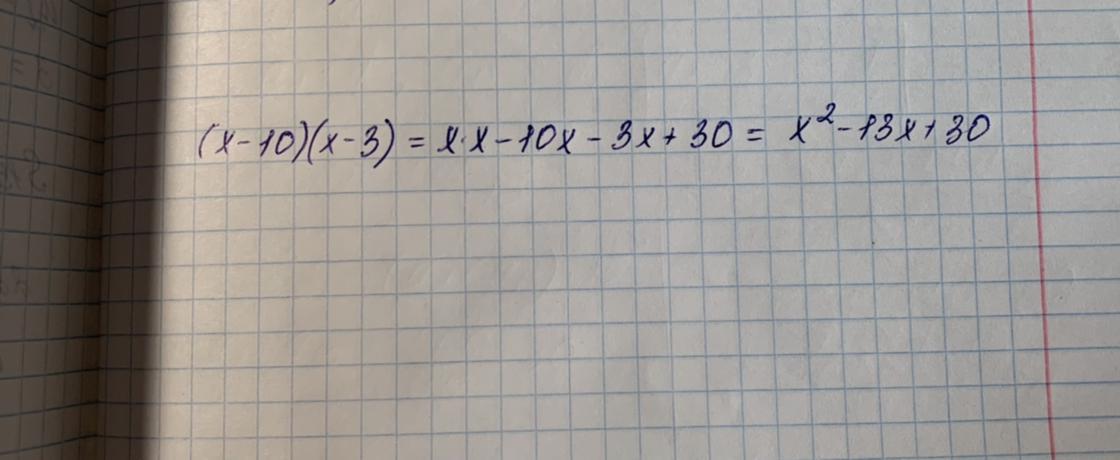 (x-10)(x-3) = x·x-10x-3x+30 = x²-13x+30